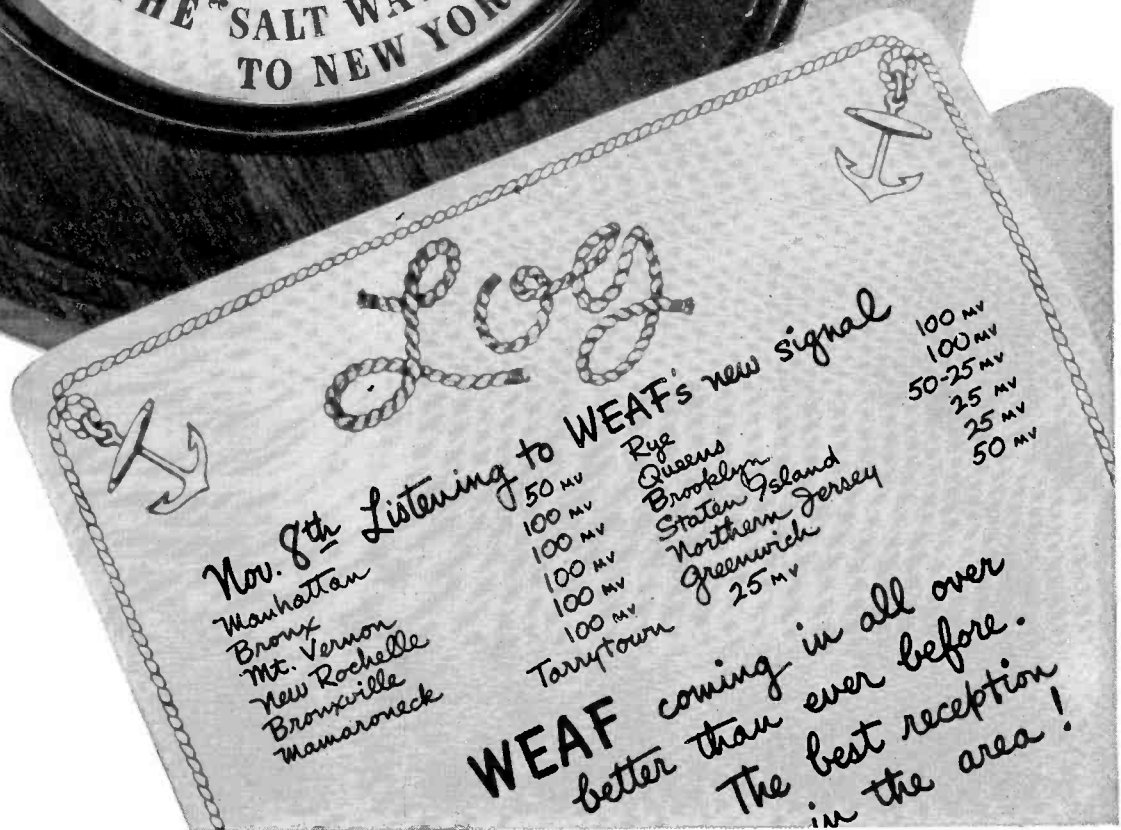 THE "SALT WA
TO NEW YOR
Log
Nov. 8th Listening to WEAF's new signal
Manhattan 50 MV Rye 100 MV
Bronx 100 MV Queens 100 MV
Mt. Vernon 100 MV Brooklyn 50-25 MV
New Rochelle 100 MV Staten Island 25 MV
Bronxville 100 MV Northern Jersey 25 MV
Mamaroneck 100 MV Greenwich 50 MV
Tarrytown 25 MV
WEAF coming in all over
better than ever before.
The best reception
in the area!